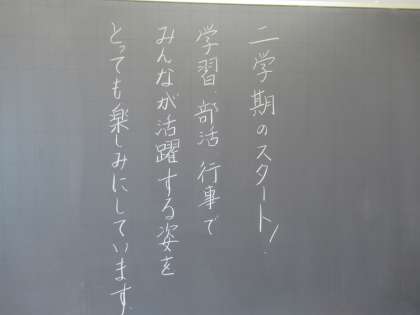 二学期のスタート!
学習、部活、行事で
みんなが活躍する姿を
とっても楽しみにしています。